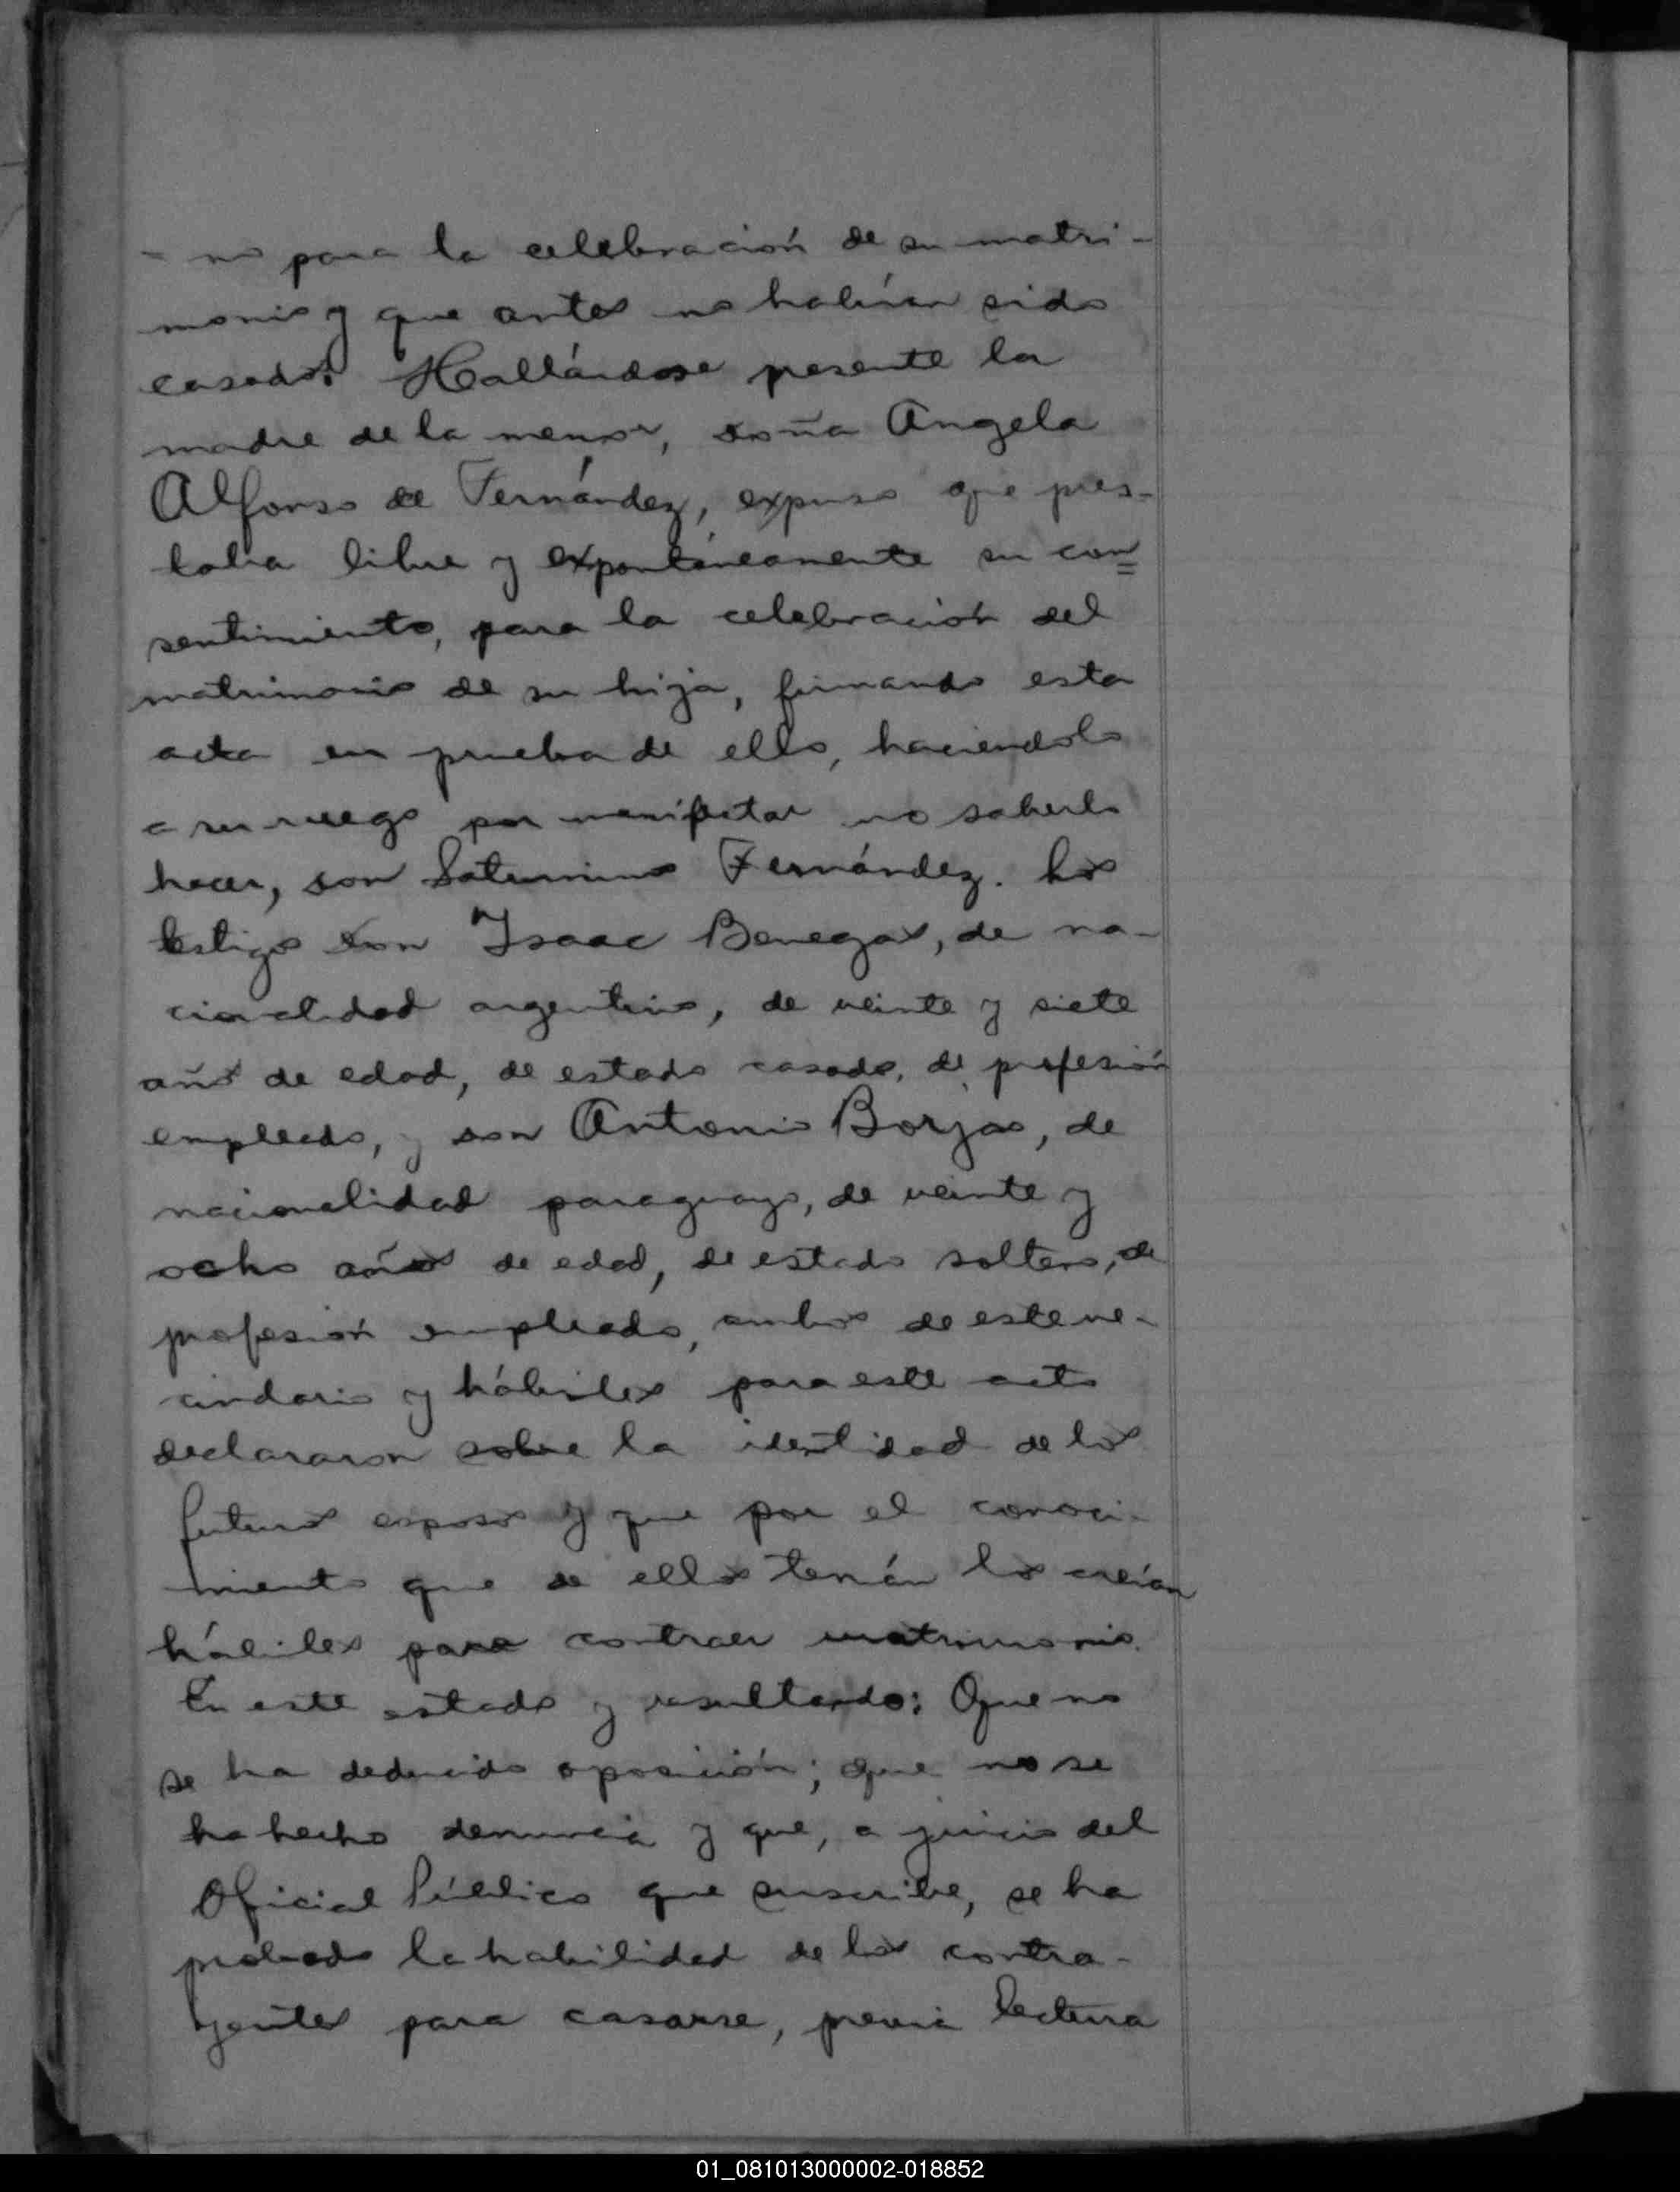 - no para la celebración de su matri-
monio y que antes no habían sido
casados. Hallándose presente la
madre de la menor, doña Angela
Alfonso de Fernández, expuso que pres-
taba libre y expontáneamente su con=
sentimiento, para la celebración del
matrimonio de su hija, firmando esta
acta en prueba de ello, haciendolo
a su ruego por manifestar no saberlo
hacer, don Saturnino Fernández. Los
testigos don Isaac Benegas, de na-
cionalidad argentino, de veinte y siete
años de edad, de estado casado, de profesión
empleado, y don Antonio Borjas, de
nacionalidad paraguayo, de veinte y
ocho años de edad, de estado soltero, de
profesión empleado, ambos de este ve-
cindario y hábiles para este acto
declararon sobre la identidad de los
futuros esposos y que por el conoci-
miento que de ellos tenían los creían
hábiles para contraer matrimonio.
En este estado y resultando: Que no
se ha deducido oposición; que no se
ha hecho denuncia y que, a juicio del
Oficial Público que suscribe, se ha
probado la habilidad de los contra-
yentes para casarse, previa lectura
01_081013000002-018852